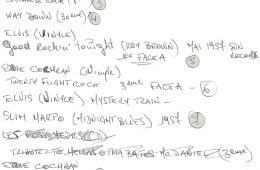 WAY DOWN (3eme) 4
ELVIS (VINYLE)
Good Rockin' Tonight (ROY BROWN) MAI 1957 SUN RECORDS
1er FACE A 5
EDDIE COCHRAN (Vinyle)
TWENTY FLIGHT ROCK 3eme FACE A - 6
ELVIS (VINYLE) MYSTERY TRAIN -
SLIM HARPO (MIDNIGHT BLUES) 1957 7
LES (CD)
TRIBUTE TO MC DANIEL (3eme)
EDDIE COCHRAN